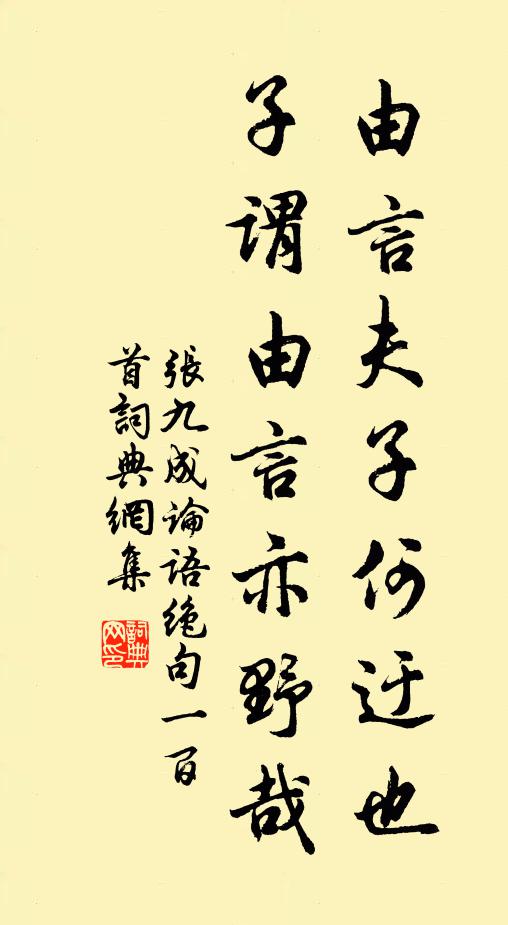 由言夫子何迂也
子謂由言亦野哉
張九成論語絶句一百
首詞典網集
詞典
网印